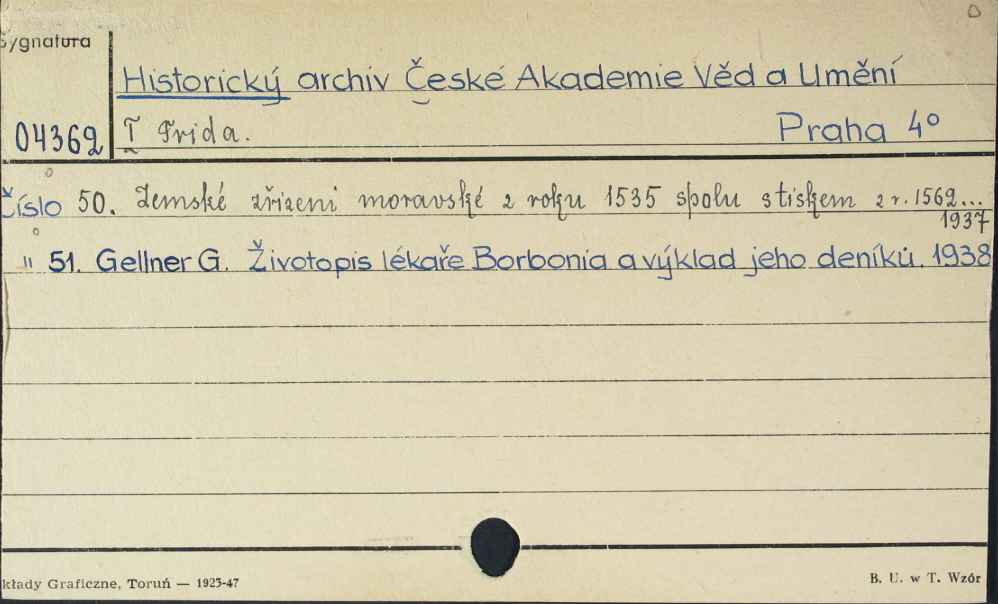 Sygnatura
Historický archiv České Akademie Věd a Umění
04362 I Třida. Praha 4°
Číslo 50. Zemské zřizeni moravské z roku 1535 spolu s tiskem z r. 1562...
1937
" 51. Gellner G. Životopis lékaře Borbonia a výklad jeho deníků. 1938
kłady Graficzne, Toruń — 1923-47
B. U. w T. Wzór